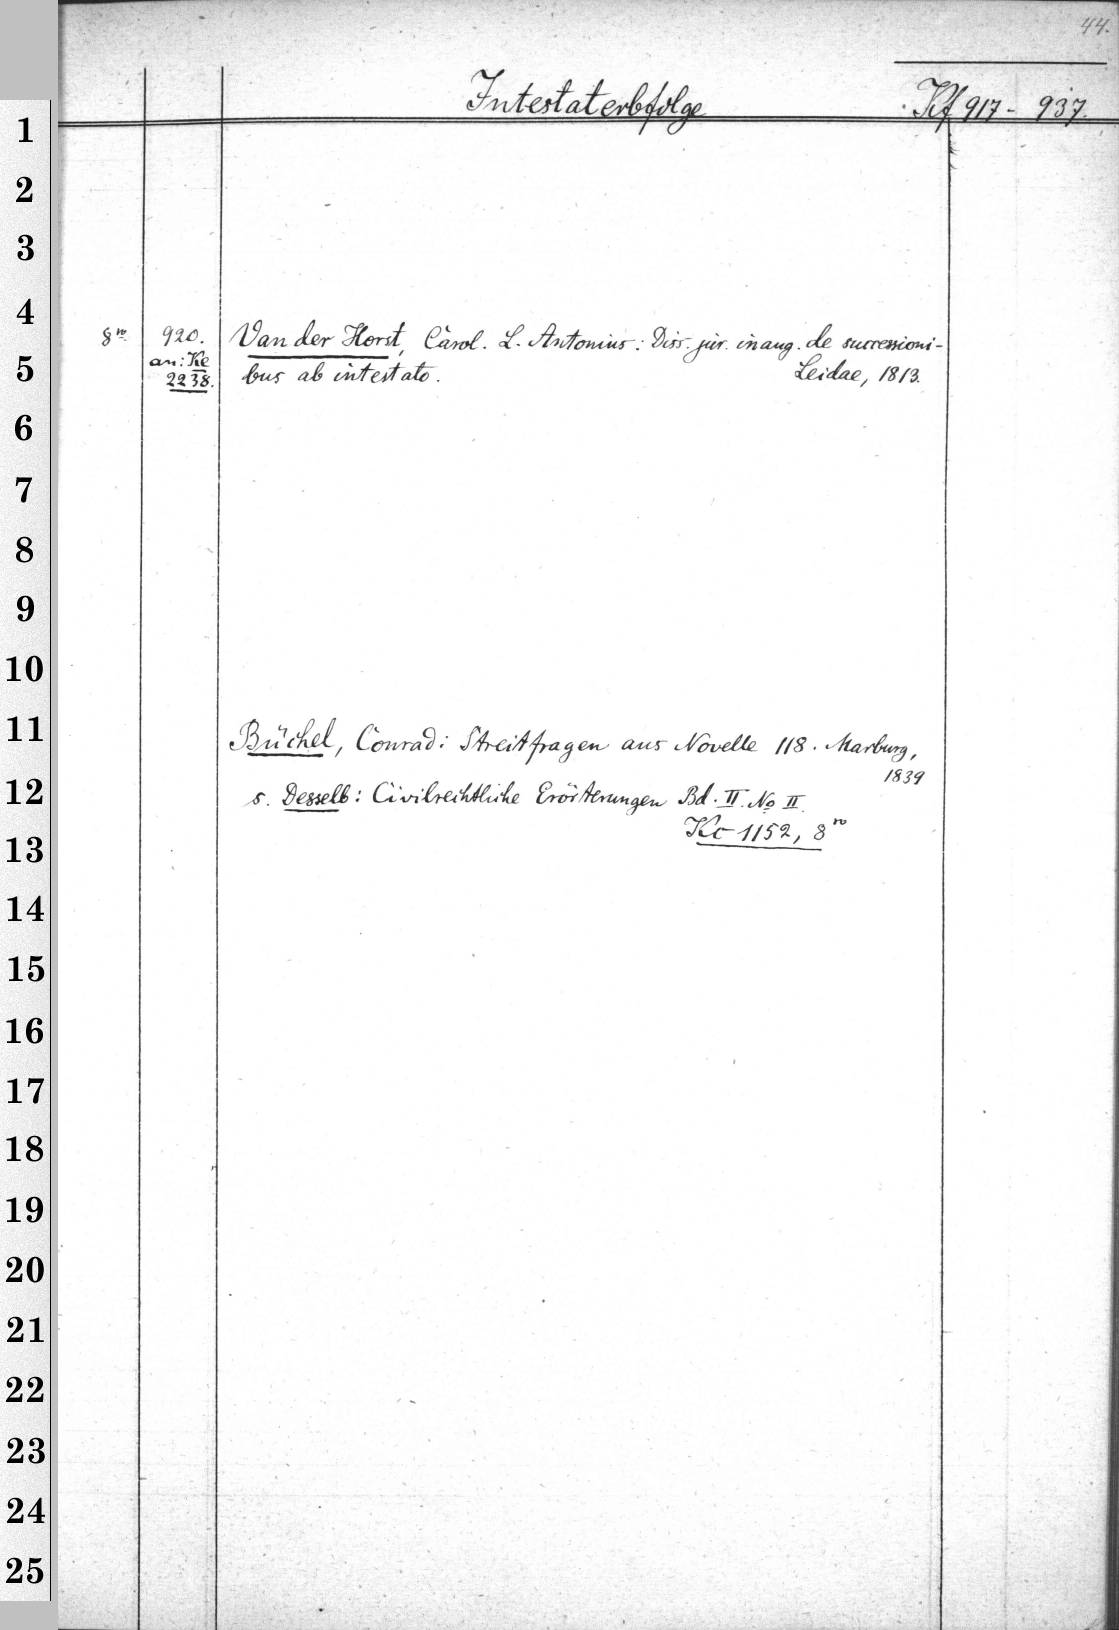 44.
Intestaterbfolge Kf 917 - 937.
1
2
3
4
8vo 920. Van der Horst, Carol. L. Antonius: Diss. jur. inaug. de successioni-
an: Ke
5
2238. bus ab intestato. Leidae, 1813.
6
7
8
9
10
11
Büchel, Conrad: Streitfragen aus Novelle 118. Marburg,
1839
12
s. Desselb: Civilrechtliche Erörterungen Bd. II. No II.
Kc 1152, 8vo
13
14
15
16
17
18
19
20
21
22
23
24
25